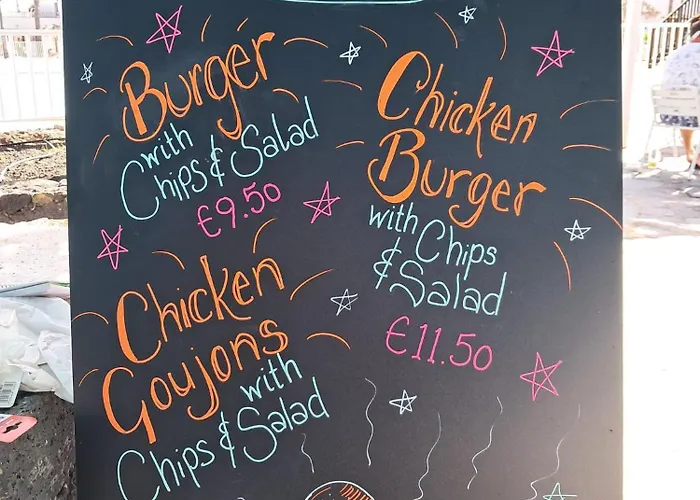 Burger
with
Chips & Salad
€9.50
Chicken
Burger
with Chips
& Salad
€11.50
Chicken
Goujons
with
Chips & Salad